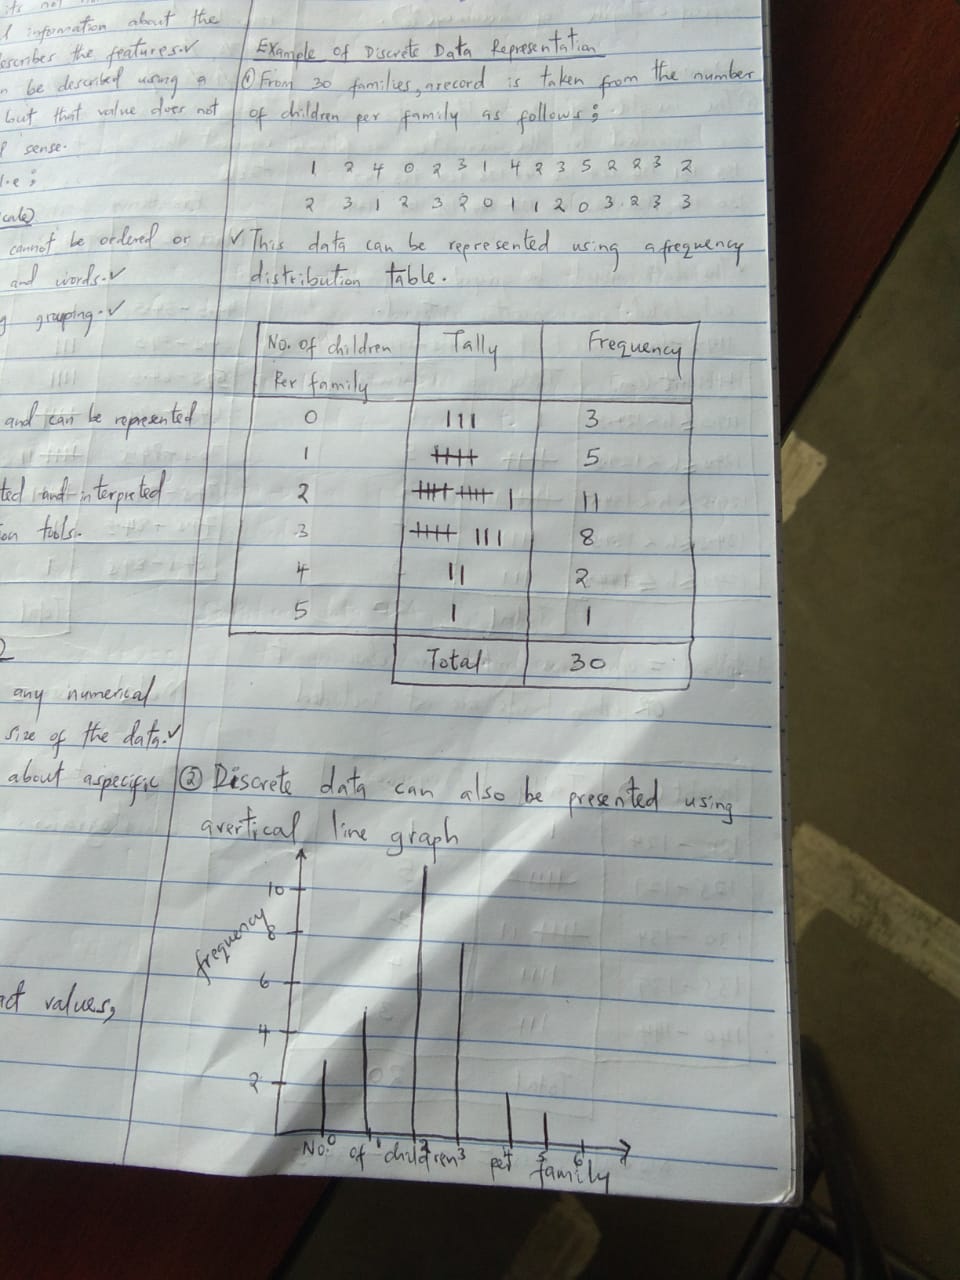 its not
information about the
describes the features.✓
be described using a
but that value does not
sense.
i.e ;
cannot be ordered or
and words.✓
grouping.✓
and can be represented
and interpreted
tools.
any numerical
size of the data.✓
about aspecific
values,
Example of Discrete Data Representation
① From 30 families, arecord is taken from the number
of children per family as follows ;
1 2 4 0 2 3 1 4 2 3 5 2 2 3 2
2 3 1 2 3 2 0 1 1 2 0 3 2 3 3
✓ This data can be represented using afrequency
distribution table.
No. of children Tally Frequency
Per family
0 III 3
1 5
2 11
3 8
4 II 2
5 I 1
Total 30
② Discrete data can also be presented using
avertical line graph
frequency
10
8
6
4
2
0 1 2 3 4 5 6
No. of children per family